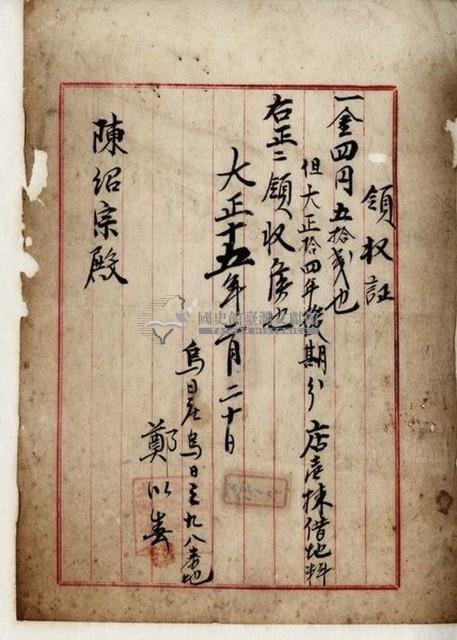 領収証
一金四円五拾戔也
但大正拾四年後期分店壹棟借地料
右正ニ領收候也
大正十五年一月二十日
烏日庄烏日三九八番地
鄭以春
陳紹宗殿
國史館臺灣文獻館
TAIWAN HISTORICA